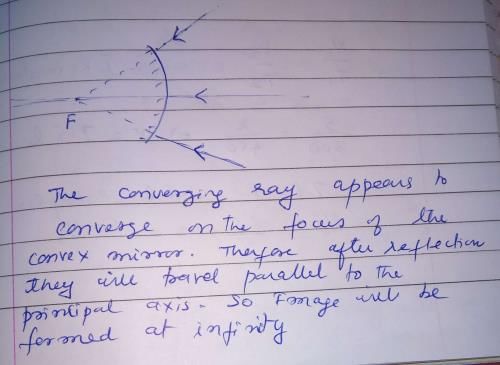 F
The converging ray appears to
converge on the focus of the
convex mirror. Therefore after reflection
they will travel parallel to the
principal axis. So Image will be
formed at infinity